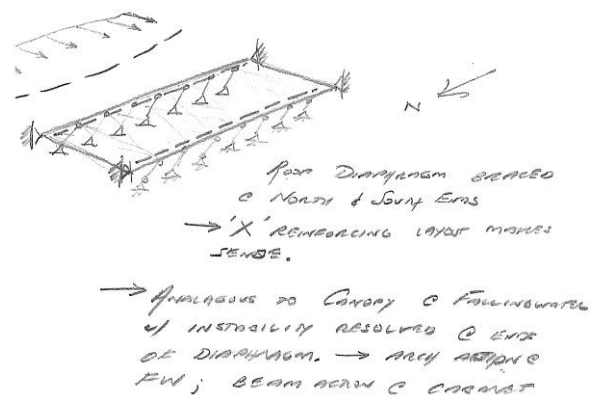 N
ROOF DIAPHRAGM BRACED
@ NORTH & SOUTH ENDS
→ 'X' REINFORCING LAYOUT MAKES
SENSE.
→ ANALAGOUS TO CANOPY @ FALLINGWATER
w/ INSTABILITY RESOLVED @ ENDS
OF DIAPHRAGM. → ARCH ACTION @
FW; BEAM ACTION @